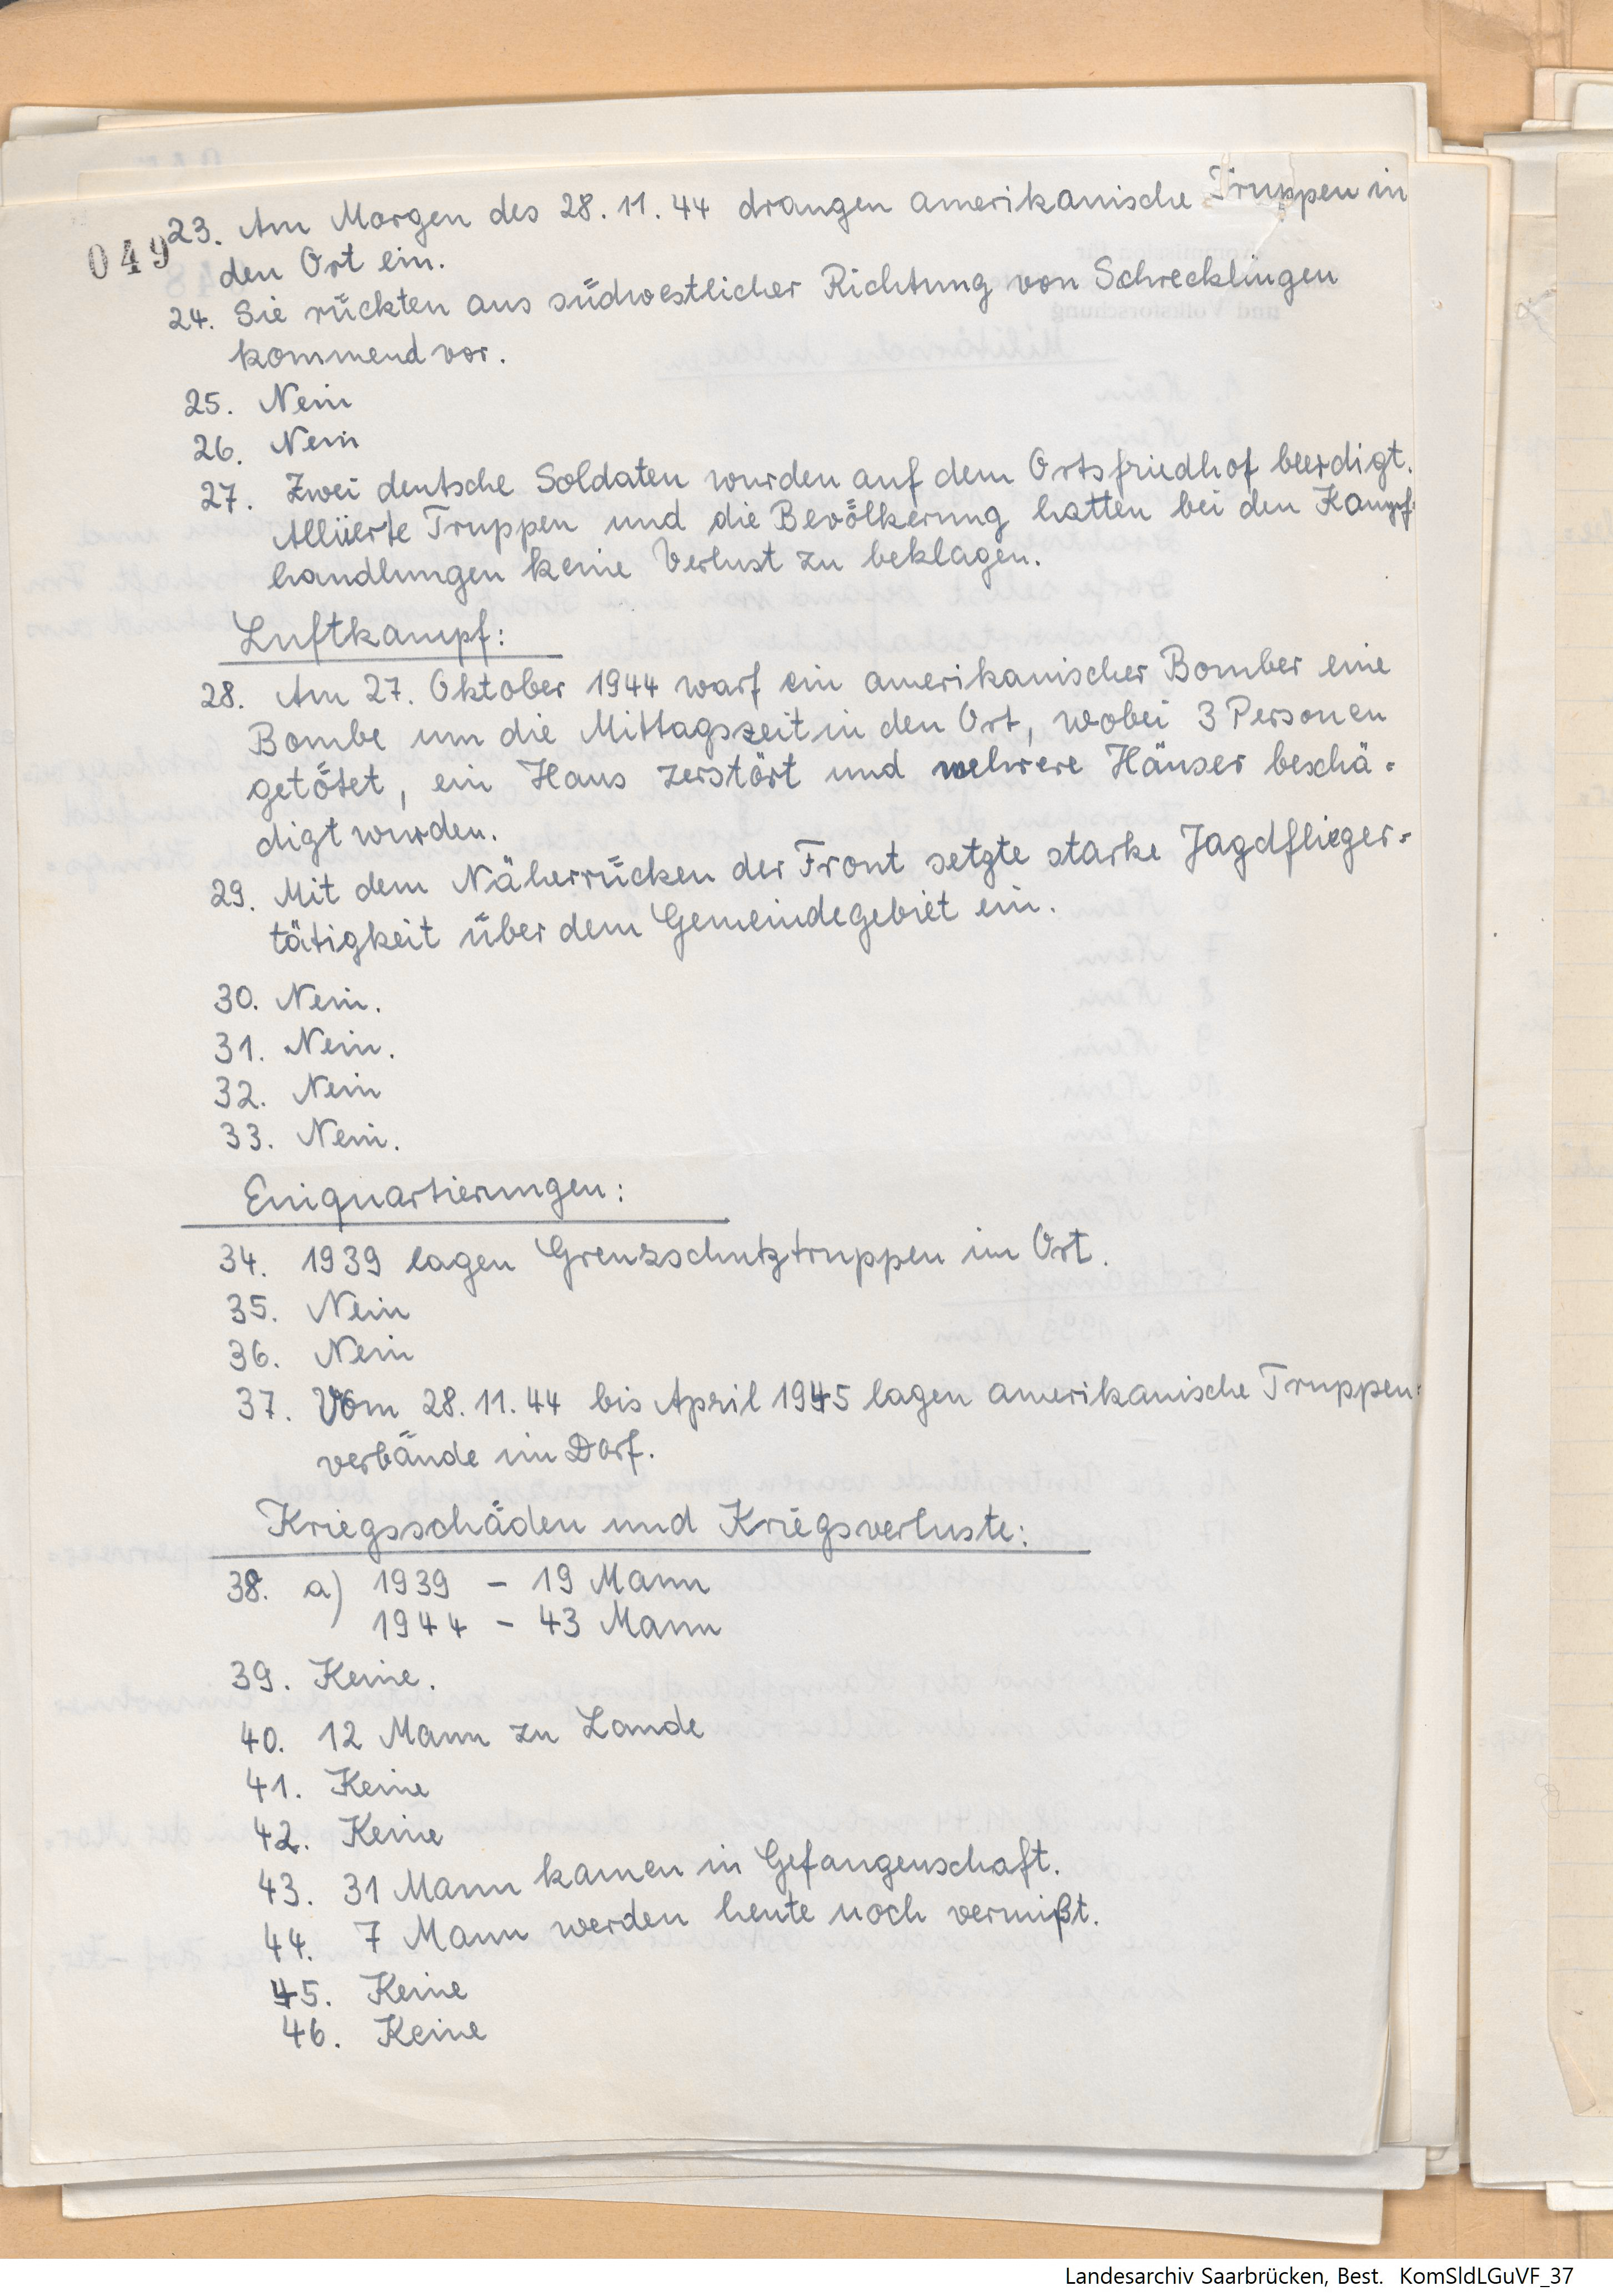 049
23. Am Morgen des 28.11.44 drangen amerikanische Truppen in
den Ort ein.
24. Sie rückten aus südwestlicher Richtung von Schrecklingen
kommend vor.
25. Nein
26. Nein
27. Zwei deutsche Soldaten wurden auf dem Ortsfriedhof beerdigt.
Alliierte Truppen und die Bevölkerung hatten bei den Kampf-
handlungen keine Verlust zu beklagen.
Luftkampf:
28. Am 27. Oktober 1944 warf ein amerikanischer Bomber eine
Bombe um die Mittagszeit in den Ort, wobei 3 Personen
getötet, ein Haus zerstört und mehrere Häuser beschä-
digt wurden.
29. Mit dem Näherrücken der Front setzte starke Jagdflieger-
tätigkeit über dem Gemeindegebiet ein.
30. Nein.
31. Nein.
32. Nein
33. Nein.
Einquartierungen:
34. 1939 lagen Grenzschutztruppen im Ort.
35. Nein
36. Nein
37. Vom 28.11.44 bis April 1945 lagen amerikanische Truppen-
verbände im Dorf.
Kriegsschäden und Kriegsverluste:
38. a) 1939 - 19 Mann
1944 - 43 Mann
39. Keine.
40. 12 Mann zu Lande
41. Keine
42. Keine
43. 31 Mann kamen in Gefangenschaft.
44. 7 Mann werden heute noch vermißt.
45. Keine
46. Keine
Landesarchiv Saarbrücken, Best. KomSldLGuVF_37